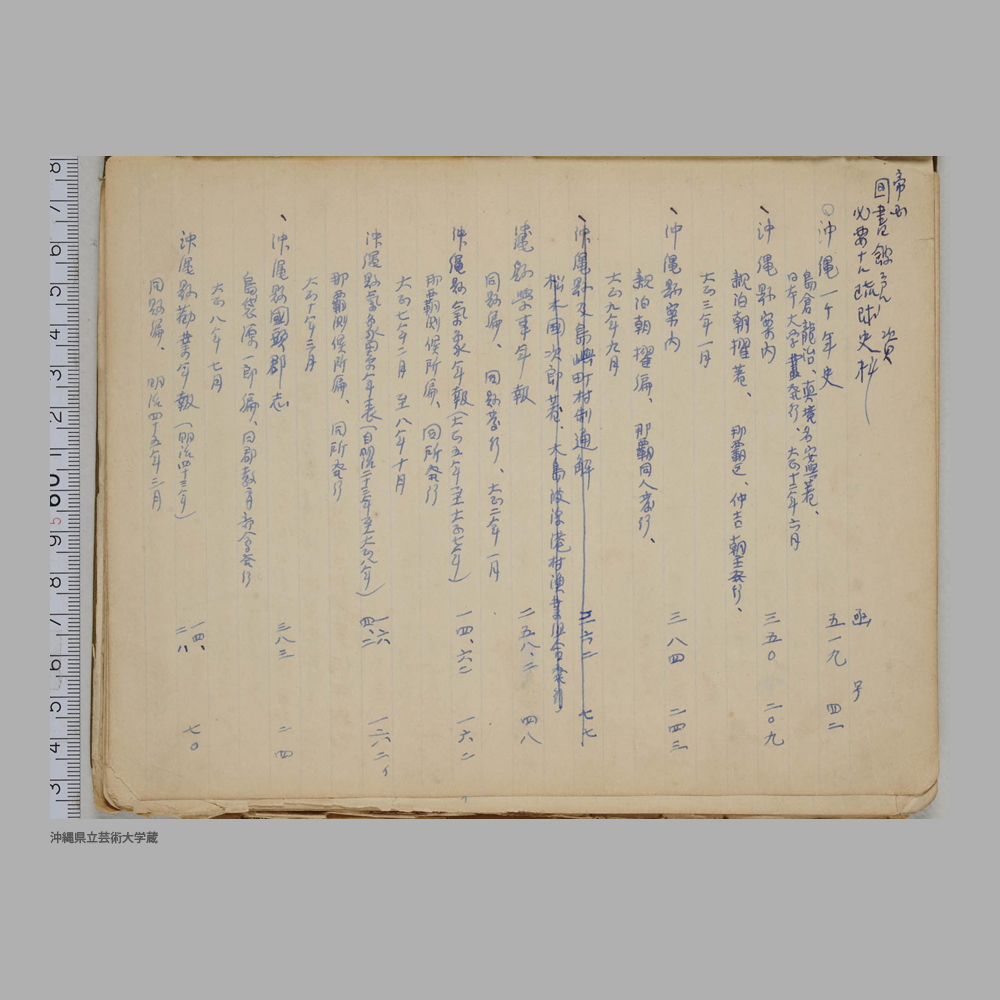 帝国
図書館ニテノ
必要ナル琉球史資料
函 号
○沖縄一千年史 五一九 四二
島倉龍治、真境名安興著、
日本大学発行、大正十二年六月
、沖縄縣案内 三五〇 二〇九
親泊朝擢著、那覇区、仲吉朝 発行、
大正三年一月
、沖縄縣案内 三八四 二四三
親泊朝擢編、那覇同人発行、
大正九年九月
、沖縄縣及島嶼町村制通解 三六二 七七
松木国次郎著、大島 港村漁業組合発行
沖縄縣学事年報 二五八、二 四八
同縣編、同縣発行、大正二年一月
沖縄縣気象年報(大正五年至大正七年) 一四、六二 一六二
那覇測候所編、同所発行
大正七年二月 至八年十月
沖縄縣気象累年表(自明治二十三年至大正八年) 一六四、二 一六二イ
那覇測候所編、同所発行
大正十年三月
、沖縄縣國頭郡志 三八三 二四
島袋源一郎編、同郡教育部会発行
大正八年七月
沖縄縣勧業年報(明治四十三年) 一四、二八 七〇
同縣編、明治四十五年三月
沖縄県立芸術大学蔵